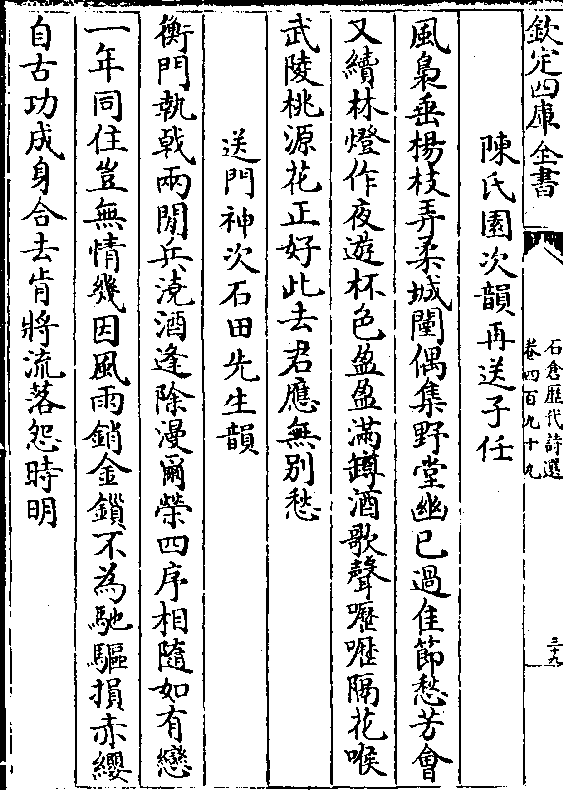 欽定四庫全書
石倉歷代詩選
卷四百九十九
三十九
陳氏園次韻再送子任
風裊垂楊枝弄柔城闉偶集野堂幽已過佳節愁芳會
又續林燈作夜遊杯色盈盈滿罇酒歌聲嚦嚦隔花喉
武陵桃源花正好此去君應無别愁
送門神次石田先生韻
衡門執戟兩閒兵澆酒逢除漫爾榮四序相隨如有戀
一年同住豈無情幾因風雨銷金鎖不為馳驅損赤纓
自古功成身合去肯將流落怨時明